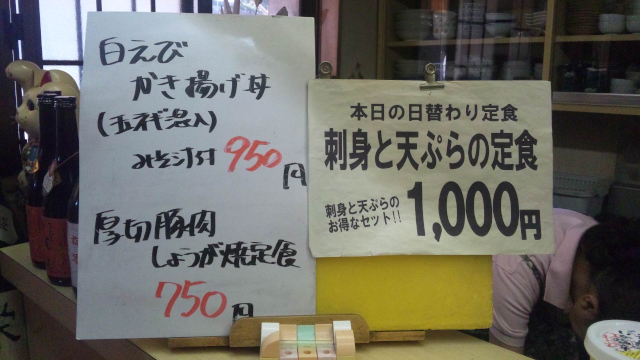 白えび
かき揚げ丼
(玉ネギ混入)
みそ汁付 950円
厚切豚肉
しょうが焼定食
750円
本日の日替わり定食
刺身と天ぷらの定食
刺身と天ぷらの
お得なセット!!
1,000円